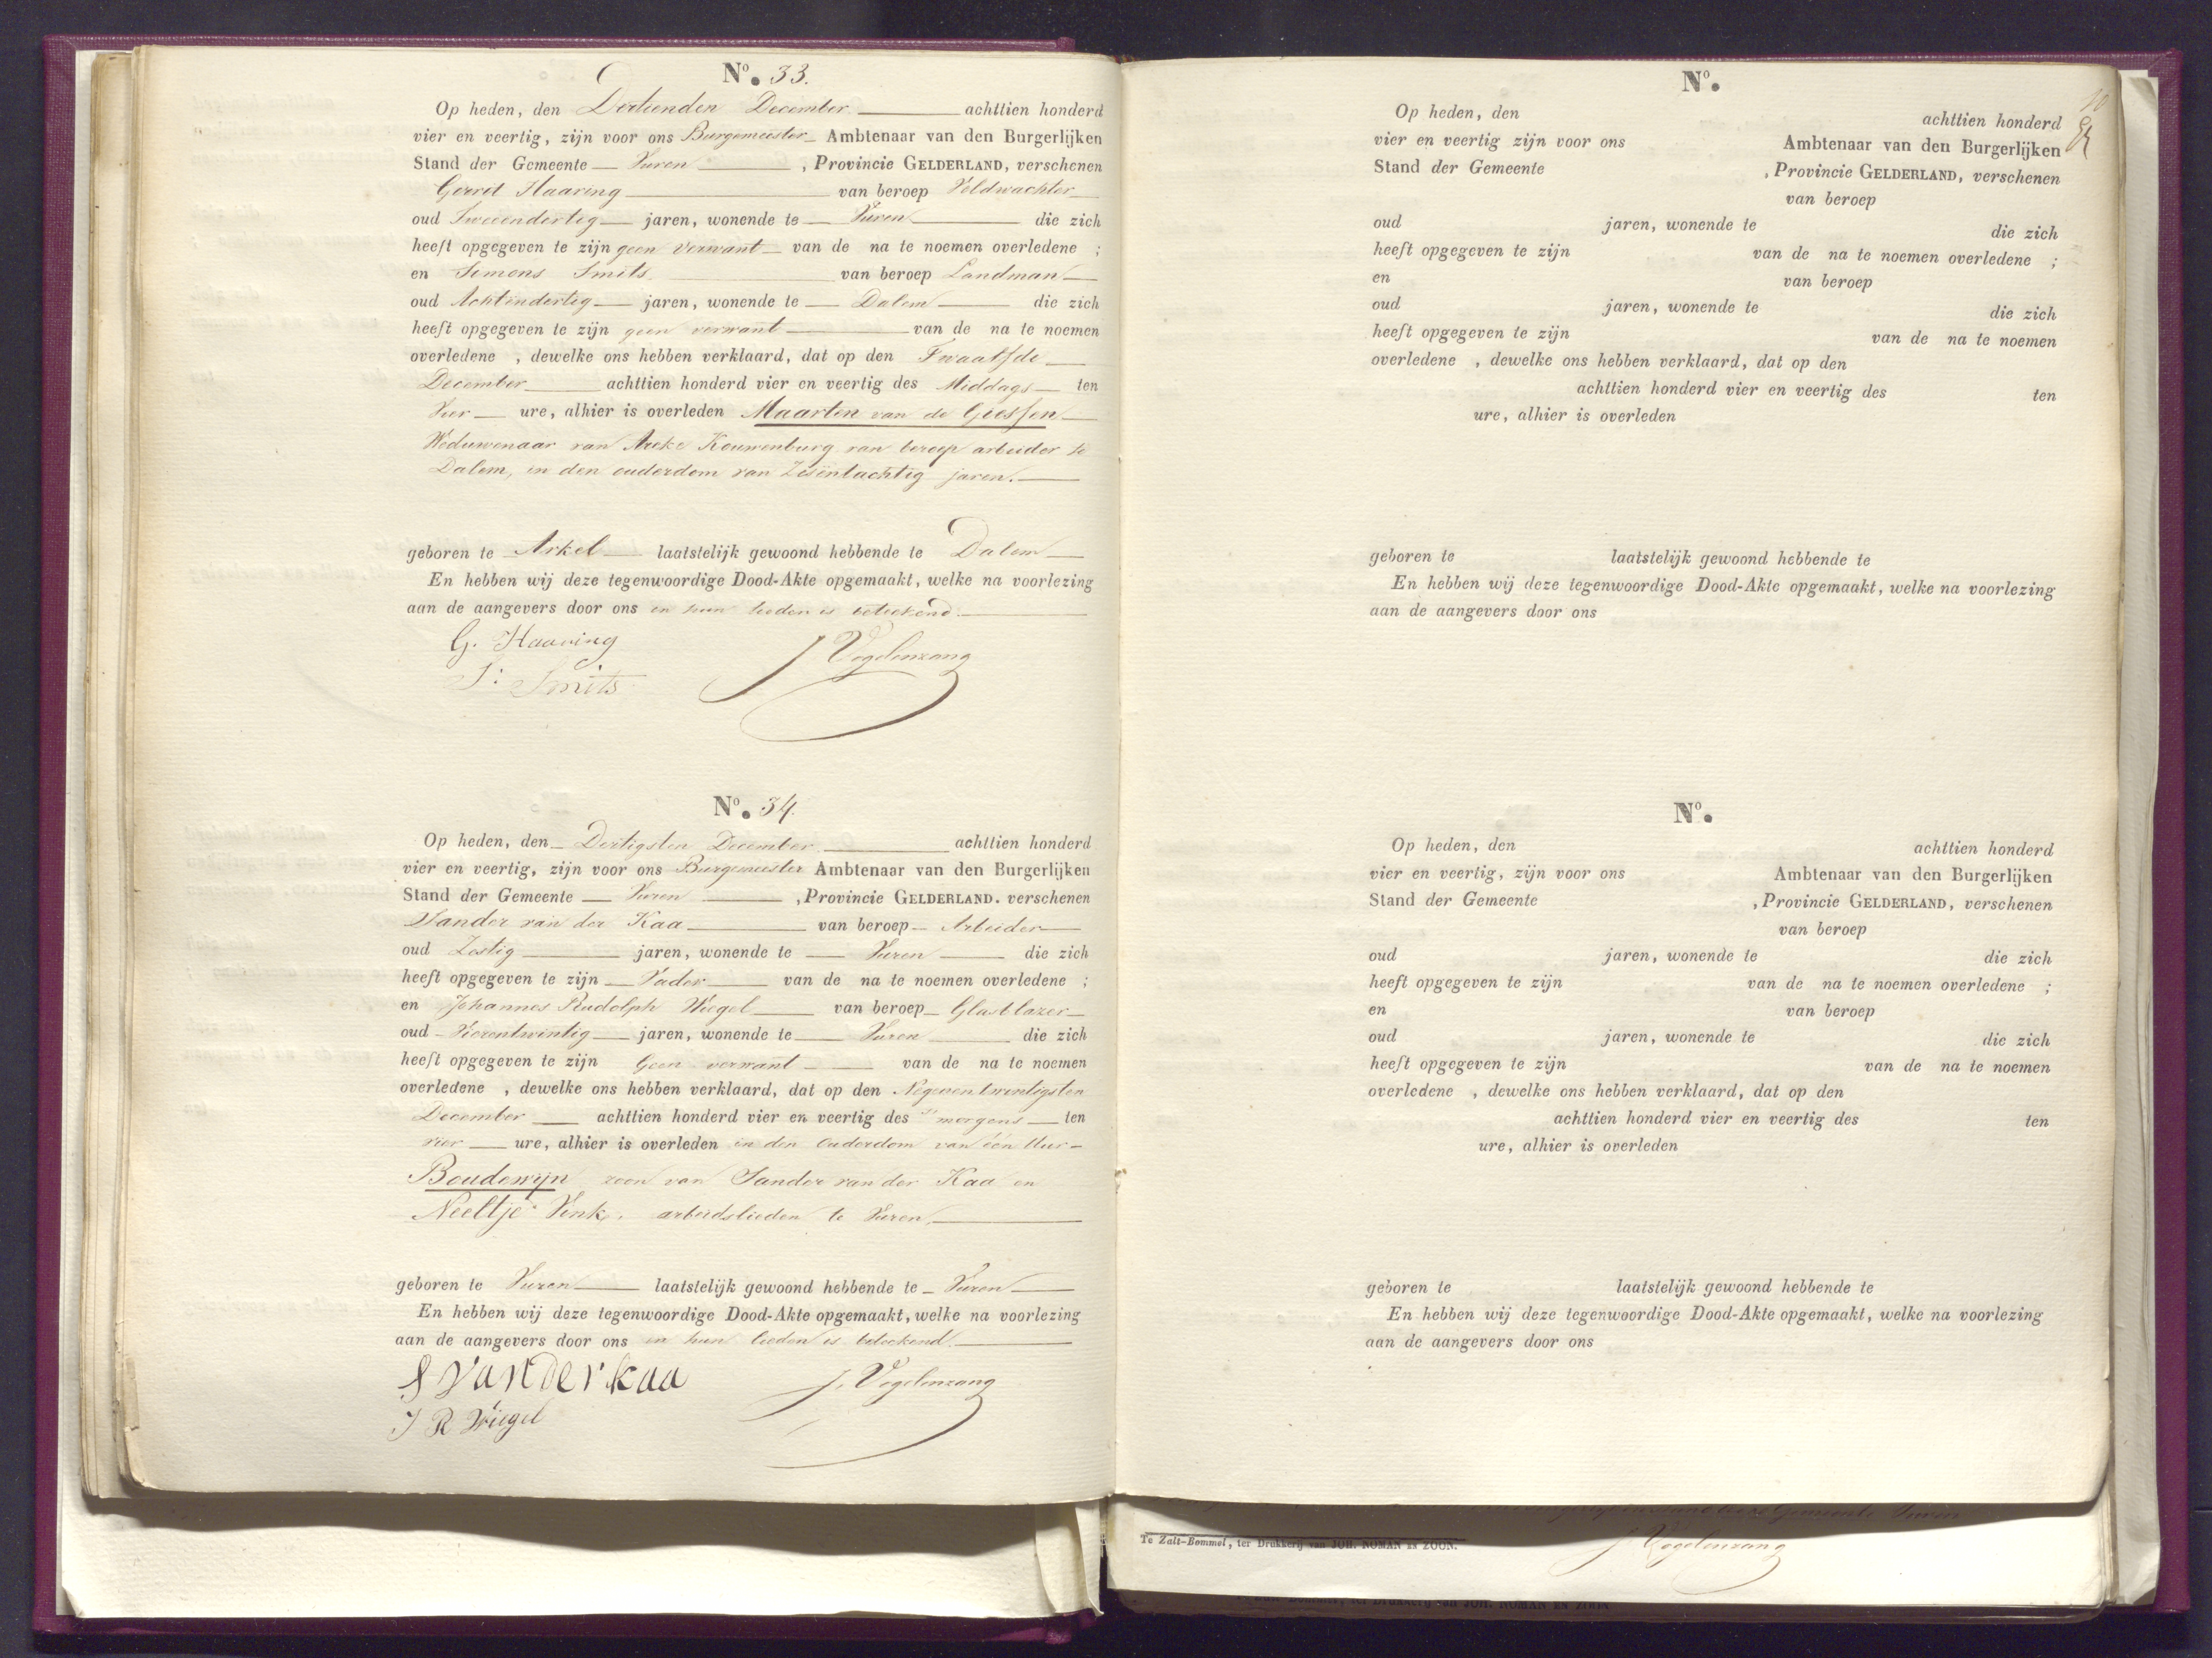 No. 33.
Op heden, den Dertienden December achttien honderd
vier en veertig, zijn voor ons Burgemeester Ambtenaar van den Burgerlijken
Stand der Gemeente Vuren , Provincie GELDERLAND, verschenen
Gerrit Haaring van beroep Veldwachter
oud Tweeendertig jaren, wonende te Vuren die zich
heeft opgegeven te zijn geen verwant van de na te noemen overledene ;
en Simons Smits van beroep Landman
oud Achtendertig jaren, wonende te Dalem die zich
heeft opgegeven te zijn geen verwant van de na te noemen
overledene , dewelke ons hebben verklaard, dat op den Twaalfde
December achttien honderd vier en veertig des Middags ten
Vier ure, alhier is overleden Maarten van de Giessen
Weduwenaar van Kouwenburg van beroep arbeider te
Dalem, in den ouderdom van Zesentachtig jaren.
geboren te Arkel laatstelijk gewoond hebbende te Dalem
En hebben wij deze tegenwoordige Dood-Akte opgemaakt, welke na voorlezing
aan de aangevers door ons en hun lieden is beteekend.
G. Haaring
S: Smits
J Vogelenzang
No. 34.
Op heden, den Dertigsten December achttien honderd
vier en veertig, zijn voor ons Burgemeester Ambtenaar van den Burgerlijken
Stand der Gemeente Vuren , Provincie GELDERLAND. verschenen
Sander van der Kaa van beroep Arbeider
oud Zestig jaren, wonende te Vuren die zich
heeft opgegeven te zijn Vader van de na te noemen overledene ;
en Johannes Rudolph Wiegel van beroep Glasblazer
oud Vierentwintig jaren, wonende te Vuren die zich
heeft opgegeven te zijn Geen verwant van de na te noemen
overledene , dewelke ons hebben verklaard, dat op den Negenentwintigsten
December achttien honderd vier en veertig des 's morgens ten
vier ure, alhier is overleden in den Ouderdom van één Uur
Boudewijn zoon van Sander van der Kaa en
Neeltje Vink, arbeidslieden te Vuren,
geboren te Vuren laatstelijk gewoond hebbende te Vuren
En hebben wij deze tegenwoordige Dood-Akte opgemaakt, welke na voorlezing
aan de aangevers door ons en hun lieden is beteekend.
S van der kaa
J R Wiegel
J. Vogelenzang
No.
Op heden, den achttien honderd
vier en veertig zijn voor ons Ambtenaar van den Burgerlijken
Stand der Gemeente , Provincie GELDERLAND, verschenen
van beroep
oud jaren, wonende te die zich
heeft opgegeven te zijn van de na te noemen overledene ;
en van beroep
oud jaren, wonende te die zich
heeft opgegeven te zijn van de na te noemen
overledene , dewelke ons hebben verklaard, dat op den
achttien honderd vier en veertig des ten
ure, alhier is overleden
geboren te laatstelijk gewoond hebbende te
En hebben wij deze tegenwoordige Dood-Akte opgemaakt, welke na voorlezing
aan de aangevers door ons
No.
Op heden, den achttien honderd
vier en veertig, zijn voor ons Ambtenaar van den Burgerlijken
Stand der Gemeente , Provincie GELDERLAND, verschenen
van beroep
oud jaren, wonende te die zich
heeft opgegeven te zijn van de na te noemen overledene ;
en van beroep
oud jaren, wonende te die zich
heeft opgegeven te zijn van de na te noemen
overledene , dewelke ons hebben verklaard, dat op den
achttien honderd vier en veertig des ten
ure, alhier is overleden
geboren te laatstelijk gewoond hebbende te
En hebben wij deze tegenwoordige Dood-Akte opgemaakt, welke na voorlezing
aan de aangevers door ons
Te Zalt-Bommel, ter Drukkerij van JOH. NOMAN EN ZOON.
J Vogelenzang